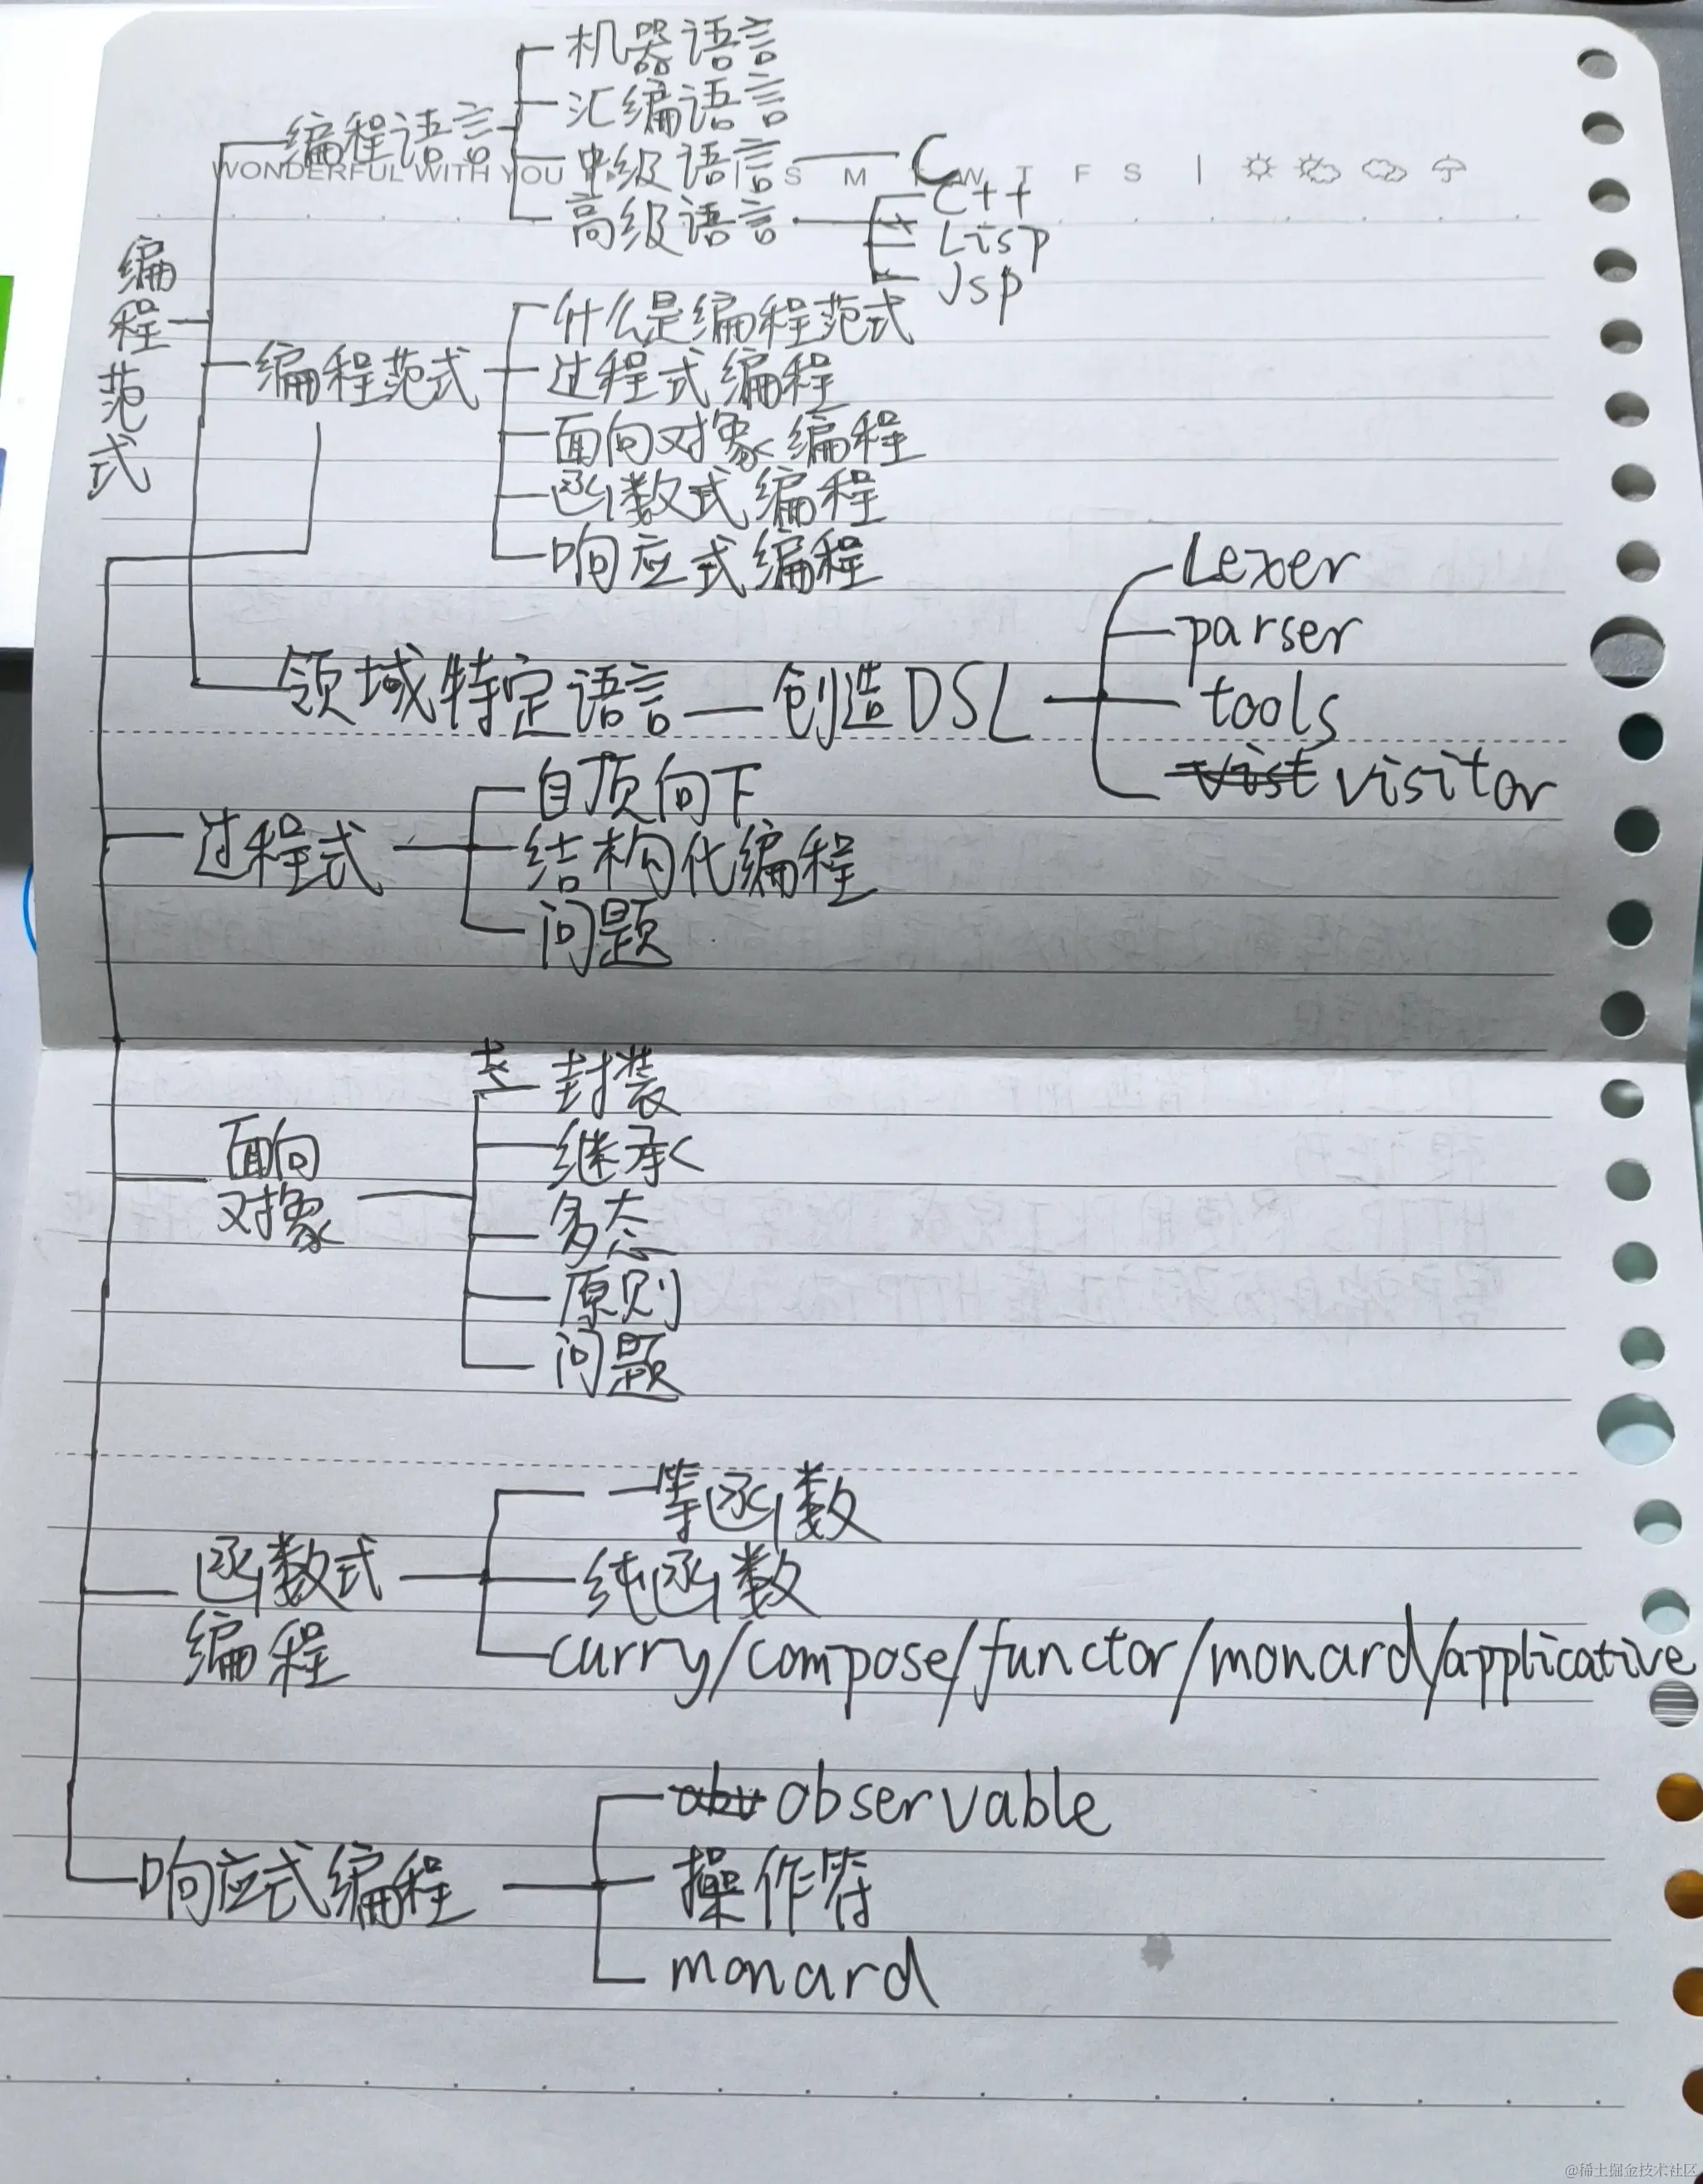 机器语言
汇编语言
编程语言
WONDERFUL WITH YOU
中级语言
S M T W T F S
C
高级语言
C++
Lisp
Jsp
编程范式
什么是编程范式
编程范式
过程式编程
面向对象编程
函数式编程
响应式编程
Lexer
parser
领域特定语言
创造DSL
tools
visitor
自顶向下
过程式
结构化编程
问题
封装
面向
对象
继承
多态
原则
问题
一等函数
函数式
编程
纯函数
curry/compose/functor/monard/applicative
observable
响应式编程
操作符
monard
@稀土掘金技术社区